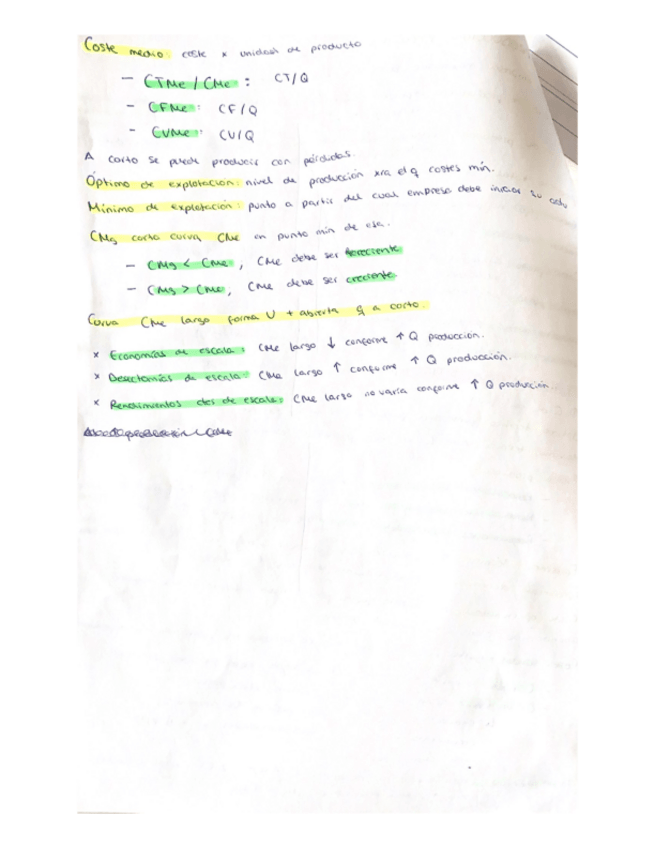 Coste medio: coste x unidad de producto
- CTMe / CMe: CT/Q
- CFMe: CF/Q
- CVMe: CV/Q
A corto se puede producir con pérdidas.
Óptimo de explotación: nivel de producción xra el q costes mín.
Mínimo de explotación: punto a partir del cual empresa debe iniciar su
CMg corta curva CMe en punto mín de esa.
- CMg < CMe, CMe debe ser decreciente
- CMg > CMe, CMe debe ser creciente
Curva CMe largo forma U + abierta q a corto.
x Economías de escala: CMe largo ↓ conforme ↑ Q producción.
x Deseconomías de escala: CMe largo ↑ conforme ↑ Q producción.
x Rendimientos ctes de escala: CMe largo no varía conforme ↑ Q producción